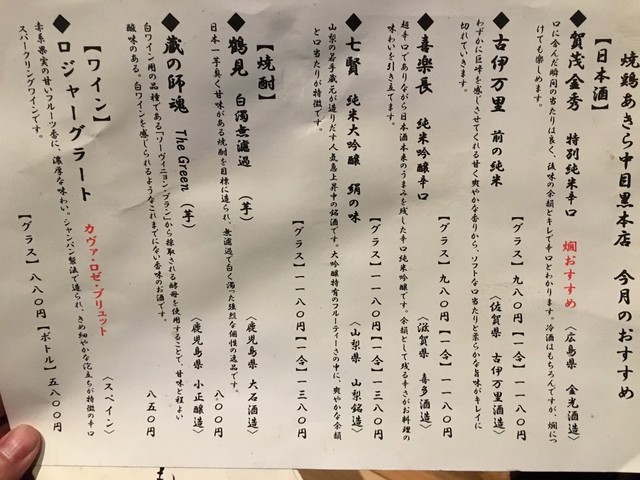 焼鶏あきら中目黒本店 今月のおすすめ
【日本酒】
◆賀茂金秀 特別純米辛口 燗おすすめ 〈広島県 金光酒造〉
口に含んだ瞬間の当たりは良く、後味の余韻とキレで辛口とわかります。冷酒はもちろんですが、燗につ
けても楽しめます。
【グラス】九八〇円【一合】一一八〇円
◆古伊万里 前の純米 〈佐賀県 古伊万里酒造〉
わずかに巨峰を感じさせてくれる甘く爽やかな香りから、ソフトな口当たりと柔らかな旨味がキレイに
切れていきます。
【グラス】九八〇円【一合】一一八〇円
◆喜楽長 純米吟醸辛口 〈滋賀県 喜多酒造〉
超辛口でありながら日本酒本来のうまみを残した辛口純米吟醸です。余韻として残る辛さがお料理の
味わいを引き立てます。
【グラス】一一八〇円【一合】一三八〇円
◆七賢 純米大吟醸 絹の味 〈山梨県 山梨銘醸〉
山梨の名手蔵元が造りだす人気急上昇中の銘酒です。大吟醸特有のフルーティーさの中に、爽やかな余韻
と口当たりが特徴です。
【グラス】一一八〇円【一合】一三八〇円
【焼酎】
◆鶴見 白濁無濾過 （芋） 〈鹿児島県 大石酒造〉
日本一芋臭く甘味がある焼酎を目標に造られ、無濾過で白く濁った強烈な個性の逸品です。
八〇〇円
◆蔵の師魂 The Green （芋） 〈鹿児島県 小正醸造〉
白ワイン用の品種である「ソーヴィニヨン・ブラン」から採取される酵母を使用することで、甘味と程よい
酸味のある。白ワインを感じられるようなこれまでにない香味のお酒です。
八五〇円
【ワイン】
◆ロジャーグラート カヴァ・ロゼ・ブリュット 〈スペイン〉
赤系果実の甘いフルーツ香に、濃厚な味わい。シャンパン製法で造られ、きめ細やかな泡立ちが特徴の辛口
スパークリングワインです。
【グラス】八八〇円【ボトル】五八〇〇円